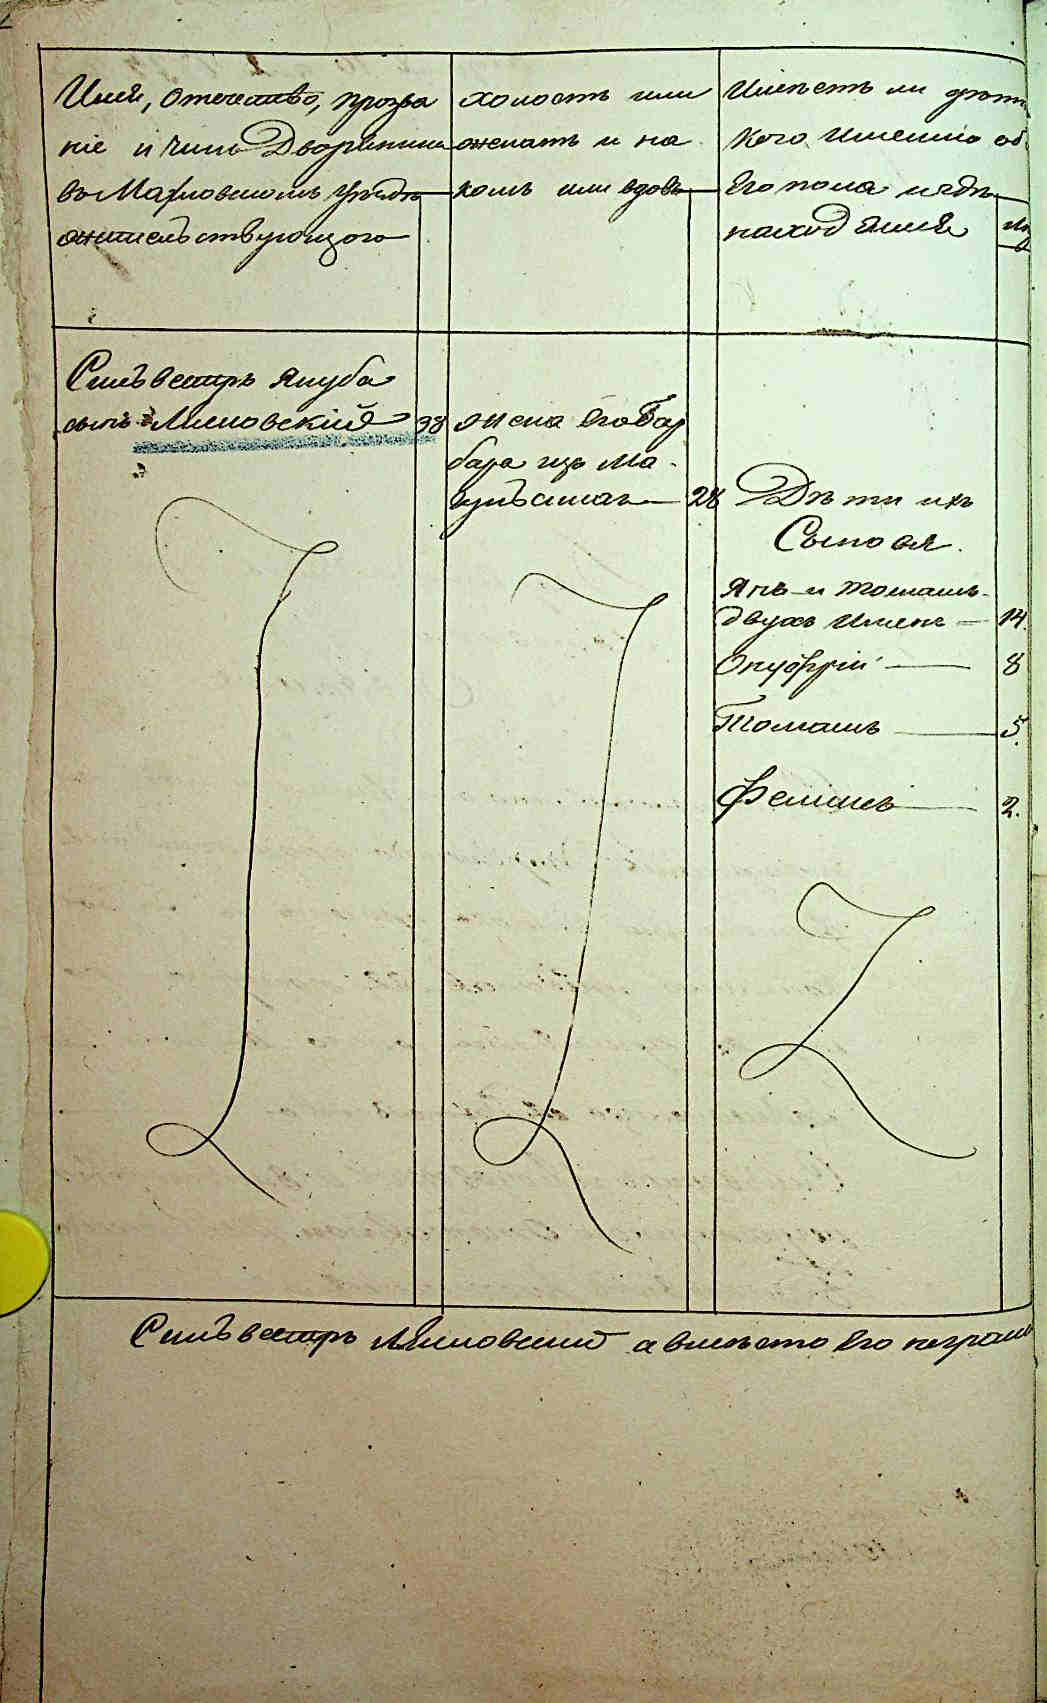 Имя, отечество, прозва
ніе и чинъ Дворянина
въ Махновскомъ уѣздѣ
жительствующого
холостъ или
женатъ и на
комъ или вдовъ
Имѣетъ ли дѣтей
кого имянно об.
его пола и гдѣ
находящіяся
Сильвестръ Якуба
сынъ Липовскій 38
жена его Вар
бара изъ Ма
28
Дѣти ихъ
Сыновя.
Янъ и Томашъ
двухъ именъ — 14.
Онуфрій — 8
Томашъ — 5.
Феликсъ — 2.
Сильвестръ Липовскій а вмѣсто его неграмо